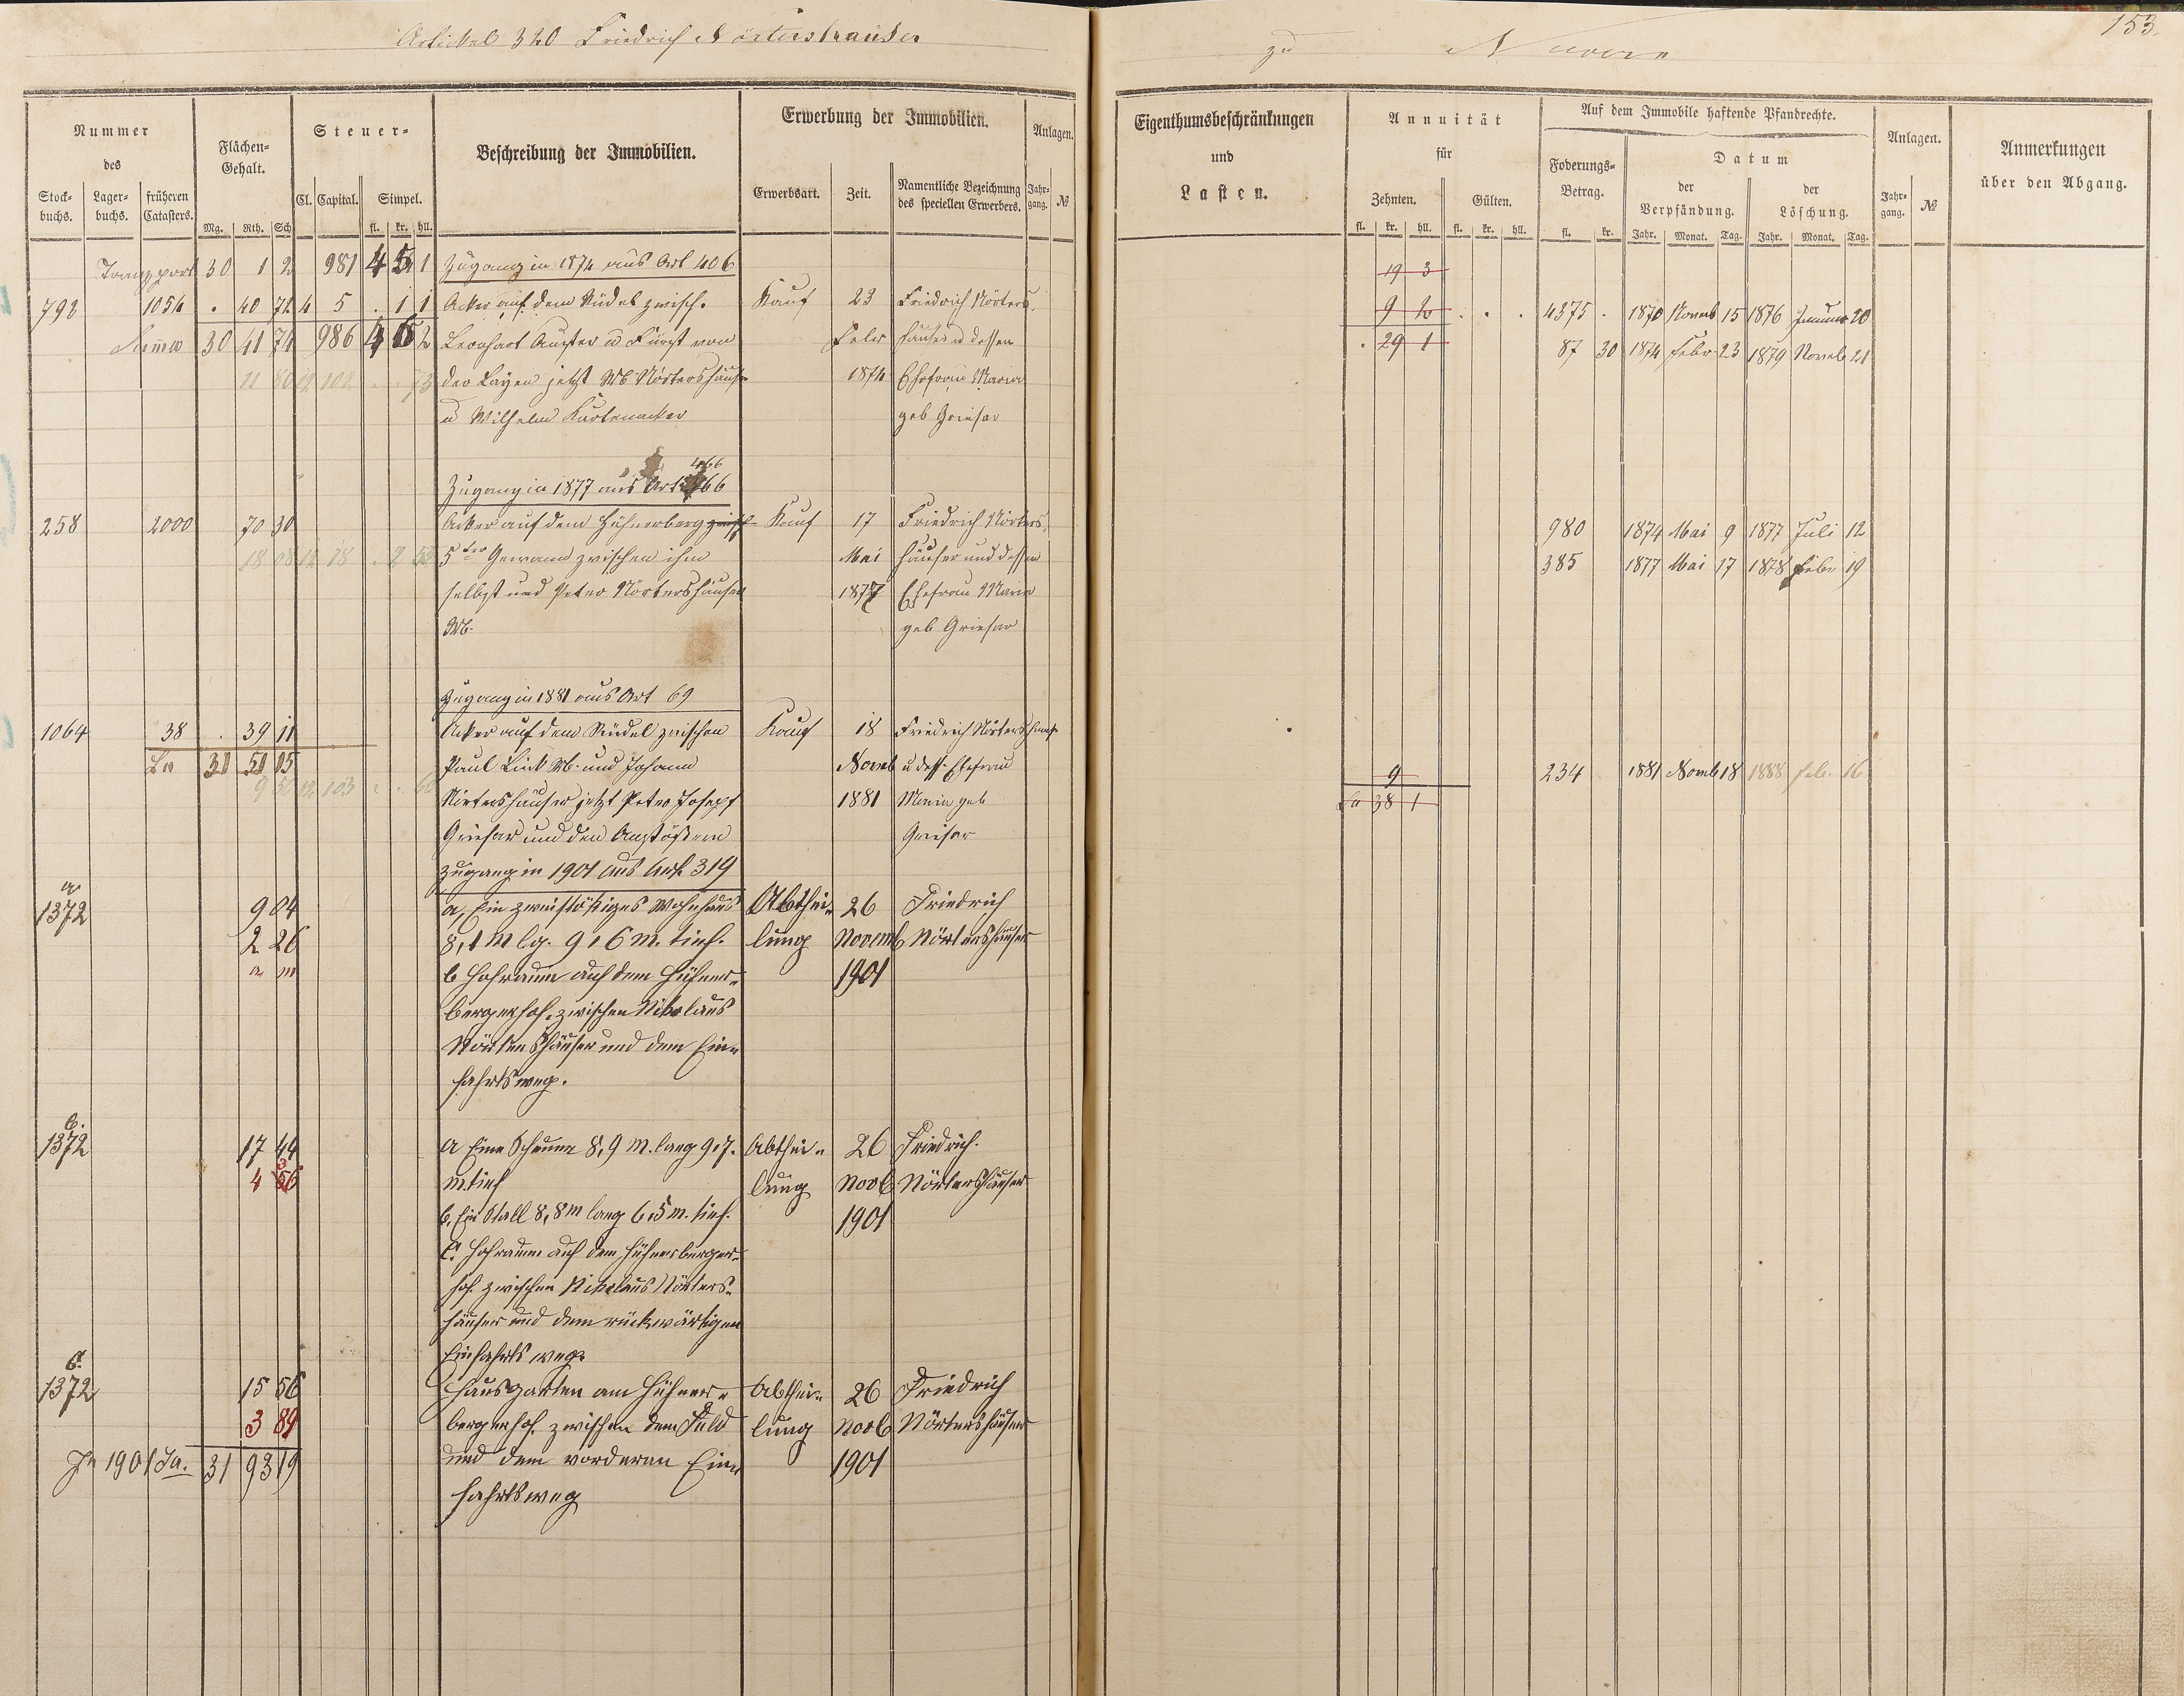 Artickel 320 Friedrich Nörtershäuser
zu Nievern
153.
Nummer
des
Stock-
buchs.
Lager-
buchs.
früheren
Catasters.
Flächen-
Gehalt.
Mg. Rth. Sch
Steuer-
Cl. Capital. Simpel.
fl. kr. hll.
Beschreibung der Immobilien.
Erwerbung der Immobilien.
Erwerbsart. Zeit.
Namentliche Bezeichnung
des speciellen Erwerbers.
Anlagen.
Jahr-
gang. №
Eigenthumsbeschränkungen
und
Lasten.
Annuität
für
Zehnten. Gülten.
fl. kr. hll. fl. kr. hll.
Auf dem Immobile haftende Pfandrechte.
Foderungs-
Betrag.
fl. kr.
Datum
der
Verpfändung.
der
Löschung.
Jahr. Monat. Tag. Jahr. Monat. Tag.
Anlagen.
Jahr-
gang. №
Anmerkungen
über den Abgang.
Transport 30 1 2 981 4 5 1 Zugang in 1874 aus Art 406 19 3
792 1054 . 40 72 4 5 . 1 1 Acker auf dem Rüdel zwisch. Kauf 23 Friedrich Nörters- 9 2 . . . 4375 . 1870 Novmb 15 1876 Januar 20
Summa 30 41 74 986 4 6 2 Leonhart Auster u Fürst von Febr häuser u dessen . 29 1 87 30 1874 Febr 23 1879 Novmb 21
11 80 der Layen jetzt Mb Nörtershäuser 1874 Ehefrau Maria
u Wilhelm Kurtenacker geb Griesar
466
Zugang in 1877 aus Art 466
258 2000 70 30 Acker auf dem Hühnerberg zwisch Kauf 17 Friedrich Nörters- 980 1874 Mai 9 1877 Juli 12
18 08 12 18 . 2 5ter Gewann zwischen ihm Mai häuser und dessen 385 1877 Mai 17 1878 Febr 19
selbst und Peter Nörtershäuser 1877 Ehefrau Maria
Mb. geb Griesar
Zugang in 1881 aus Art 69
1064 38 . 39 11 Acker auf dem Rüdel zwischen Kauf 18 Friedrich Nörtershäuser
Sa 31 51 15 Paul Link Mb. und Johann Novmb u dess. Ehefrau 9 234 1881 Novmb 18 1888 Feb. 16
103 Nörtershäuser jetzt Peter Joseph 1881 Maria geb Sa 38 1
Griesar und den Anstößern Griesar
Zugang in 1901 aus Art. 319
a
1372 9 04 a, Ein zweistöckiges Wohnhaus Abthei- 26 Friedrich
2 26 8,1 m lg. 9,6 m. tief. lung Novemb Nörtershäuser
a m b Hofraum auf dem Hühner- 1901
bergerhof, zwischen Nikolaus
Nörtershäuser und dem Ein-
fahrtsweg.
b.
1372 17 44 a Eine Scheune 8,9 m. lang 9,7. Abthei- 26 Friedrich.
4 36 m. tief lung Novb Nörtershäuser
b, Ein Stall 8,8 m lang 6,5 m. tief. 1901
c. Hofraum auf dem Hühnerberger-
hof zwischen Nikolaus Nörters-
häuser und dem rückwärtigen
Einfahrtsweg.
c.
1372 15 56 Hausgarten am Hühner- Abthei- 26 Friedrich
3 89 bergerhof, zwischen dem Feld lung Novb Nörtershäuser
In 1901 Sa. 31 93 19 und dem vorderen Ein- 1901
fahrtsweg